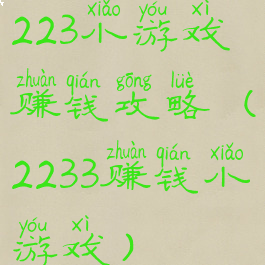 xiǎo yóu xì
223小游戏
zhuàn qián gōng lüè
赚钱攻略（
zhuàn qián xiǎo
2233赚钱小
yóu xì
游戏）